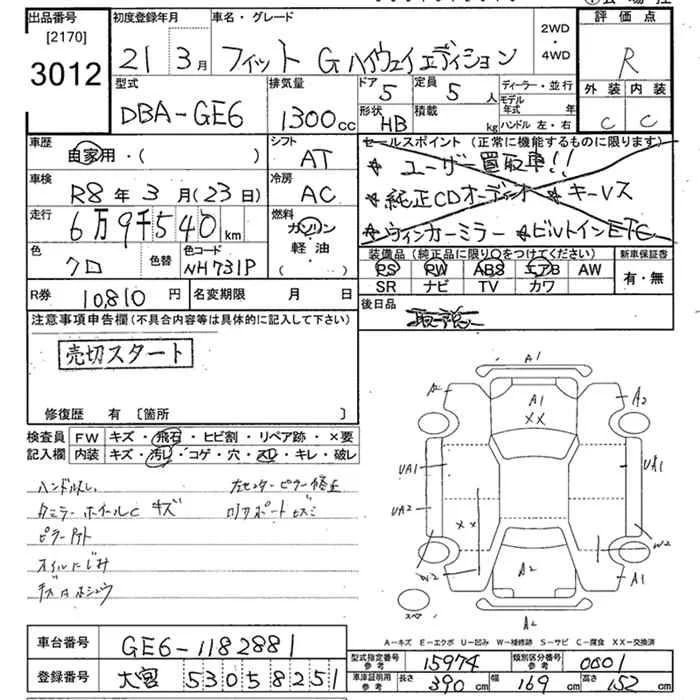 出品番号 初度登録年月 車名・グレード 2WD・4WD 評価点
[2170]
3012 21 3月 フィット G ハイウェイエディション R
型式 排気量 ドア 定員 ディーラー・並行 外装 内装
DBA-GE6 1300cc 5 5人 モデル年式 年
形状 積載 ハンドル 左・右 C C
HB kg
車歴 シフト セールスポイント(正常に機能するものに限ります)
自家用・( ) AT ★ユーザー買取車!!
車検 冷房 ★純正CDオーディオ ★キーレス
R8年3月(23日) AC ★ウィンカーミラー ★ビルトインETC
走行 燃料
6万9千540km ガソリン
色 色替 色コード 軽油
クロ NH731P ・( )
装備品(純正品に限り○をつけてください) 新車保証書
PS PW ABS エアB AW 有・無
SR ナビ TV カワ
R券 10,810円 名変期限 月 日 後日品
取説
注意事項申告欄(不具合内容等は具体的に記入して下さい)
売切スタート
修復歴 有〔箇所 〕
検査員 FW キズ・飛石・ヒビ割・リペア跡・×要
記入欄 内装 キズ・汚レ・コゲ・穴・スレ・キレ・破レ
ハンドルスレ 左センターピラー修正
ホイールC キズ
オイルにじみ
A1
A2 A1 A2
XX
UA1 UA1
UA2
XX
W2 W2
A2 A1
スペア
A2
A-キズ E-エクボ U-凹み W-補修跡 S-サビ C-腐食 XX-交換済
車台番号 GE6-1182881
登録番号 大宮 530 58251
型式指定番号 参考 15974 類別区分番号 参考 0001
車庫証明用 参考 長さ 390cm 幅 169cm 高さ 152cm